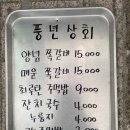 풍년상회
양념 쪽갈비 15,000
매운 쪽갈비 15,000
최루탄 주먹밥 9,000
잔치국수 4,000
누룽지 2,000